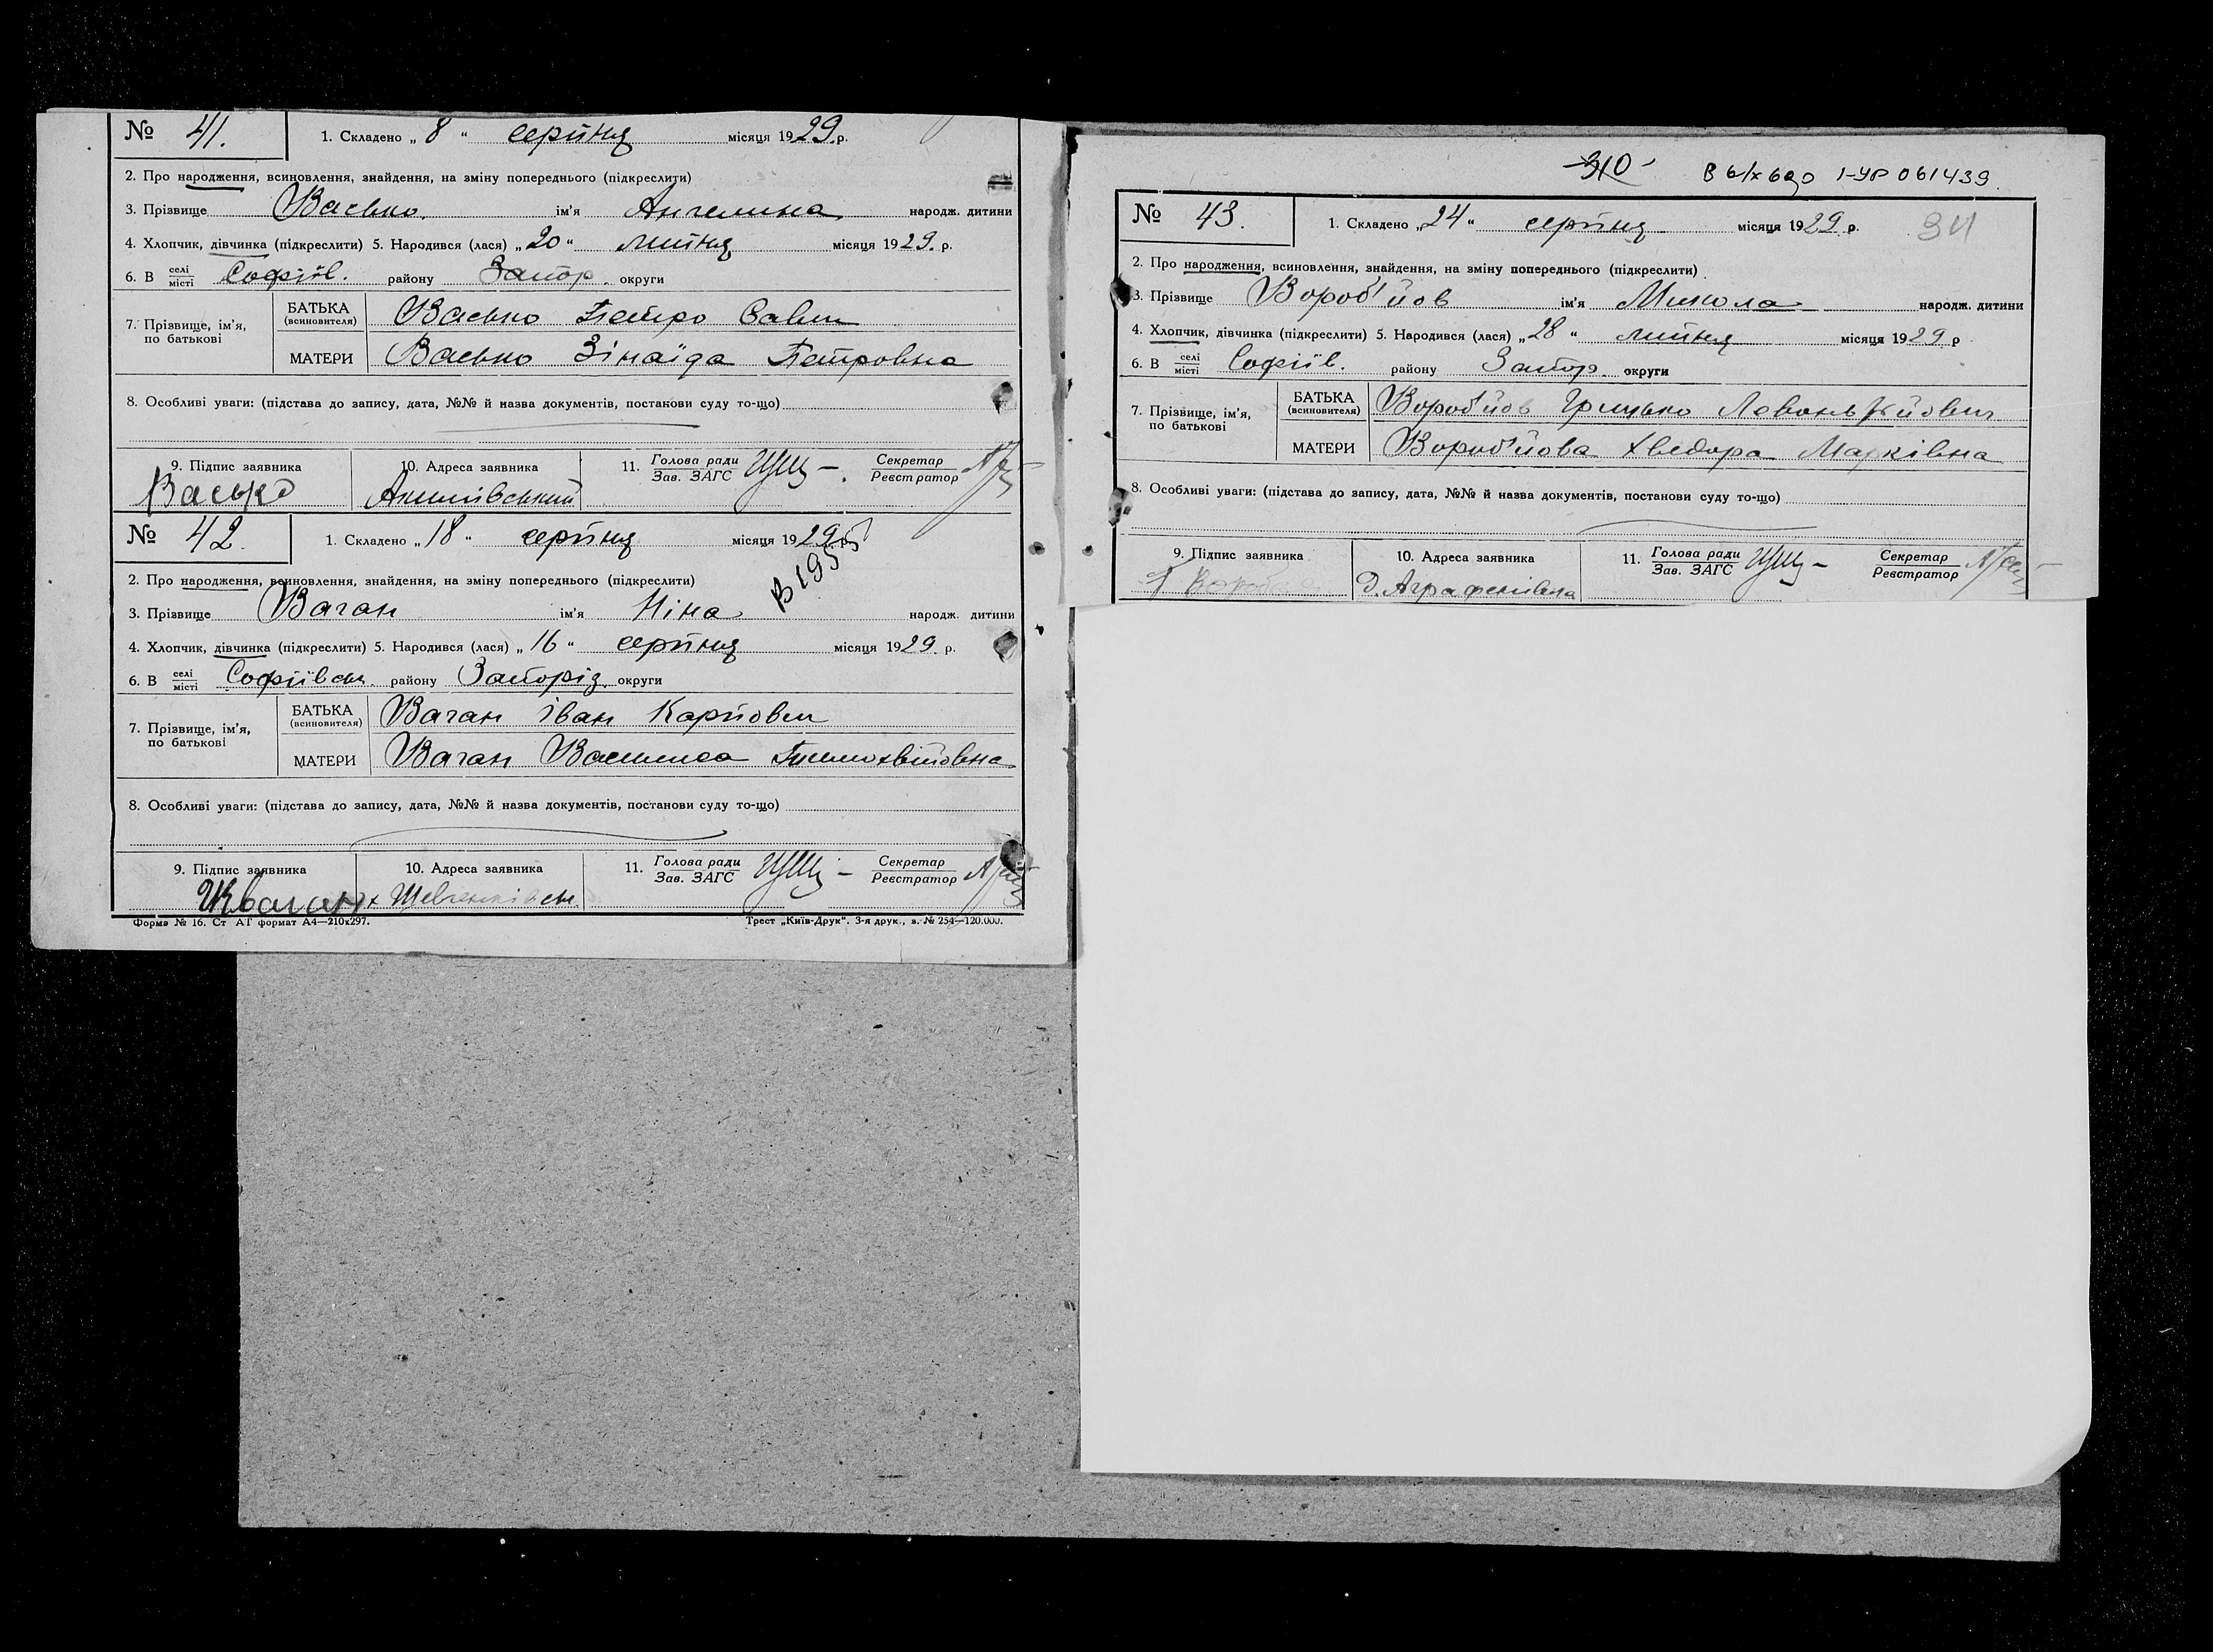 № 41. 1. Складено „8“ серпня місяця 1929 р.
2. Про народження, всиновлення, знайдення, на зміну попереднього (підкреслити)
3. Прізвище Васько. ім'я Ангелина народж. дитини
4. Хлопчик, дівчинка (підкреслити) 5. Народився (лася) „20“ липня місяця 1929. р.
6. В селі місті Софіїв. району Запор. округи
7. Прізвище, ім'я, по батькові
БАТЬКА (всиновителя) Васько Петро Савич
МАТЕРИ Васько Зінаїда Петровна
8. Особливі уваги: (підстава до запису, дата, №№ й назва документів, постанови суду то-що)
9. Підпис заявника 10. Адреса заявника 11. Голова ради Зав. ЗАГС Секретар Реєстратор
Васько
№ 42. 1. Складено „18“ серпня місяця 1929 р.
2. Про народження, всиновлення, знайдення, на зміну попереднього (підкреслити)
3. Прізвище Ваган ім'я Ніна народж. дитини
4. Хлопчик, дівчинка (підкреслити) 5. Народився (лася) „16“ серпня місяця 1929. р.
6. В селі місті Софіївськ. району Запоріз. округи
7. Прізвище, ім'я, по батькові
БАТЬКА (всиновителя) Ваган Іван Карпович
МАТЕРИ Ваган Василиса Тимохвійовна
8. Особливі уваги: (підстава до запису, дата, №№ й назва документів, постанови суду то-що)
9. Підпис заявника 10. Адреса заявника 11. Голова ради Зав. ЗАГС Секретар Реєстратор
х Шевченківськ.
Форма № 16. Ст АТ формат А4—210х297. Трест „Київ-Друк“. 3-я друк., з. № 254—120.000.
310 1-УР 061439
№ 43. 1. Складено „24“ серпня місяця 1929 р. 34
2. Про народження, всиновлення, знайдення, на зміну попереднього (підкреслити)
3. Прізвище Вороб'йов ім'я Микола народж. дитини
4. Хлопчик, дівчинка (підкреслити) 5. Народився (лася) „28“ липня місяця 1929 р
6. В селі місті Софіїв. району Запор. округи
7. Прізвище, ім'я, по батькові
БАТЬКА (всиновителя) Вороб'йов Грицько
МАТЕРИ Вороб'йова Хведора Марківна
8. Особливі уваги: (підстава до запису, дата, №№ й назва документів, постанови суду то-що)
9. Підпис заявника 10. Адреса заявника 11. Голова ради Зав. ЗАГС Секретар Реєстратор
Д. Аграфенівка